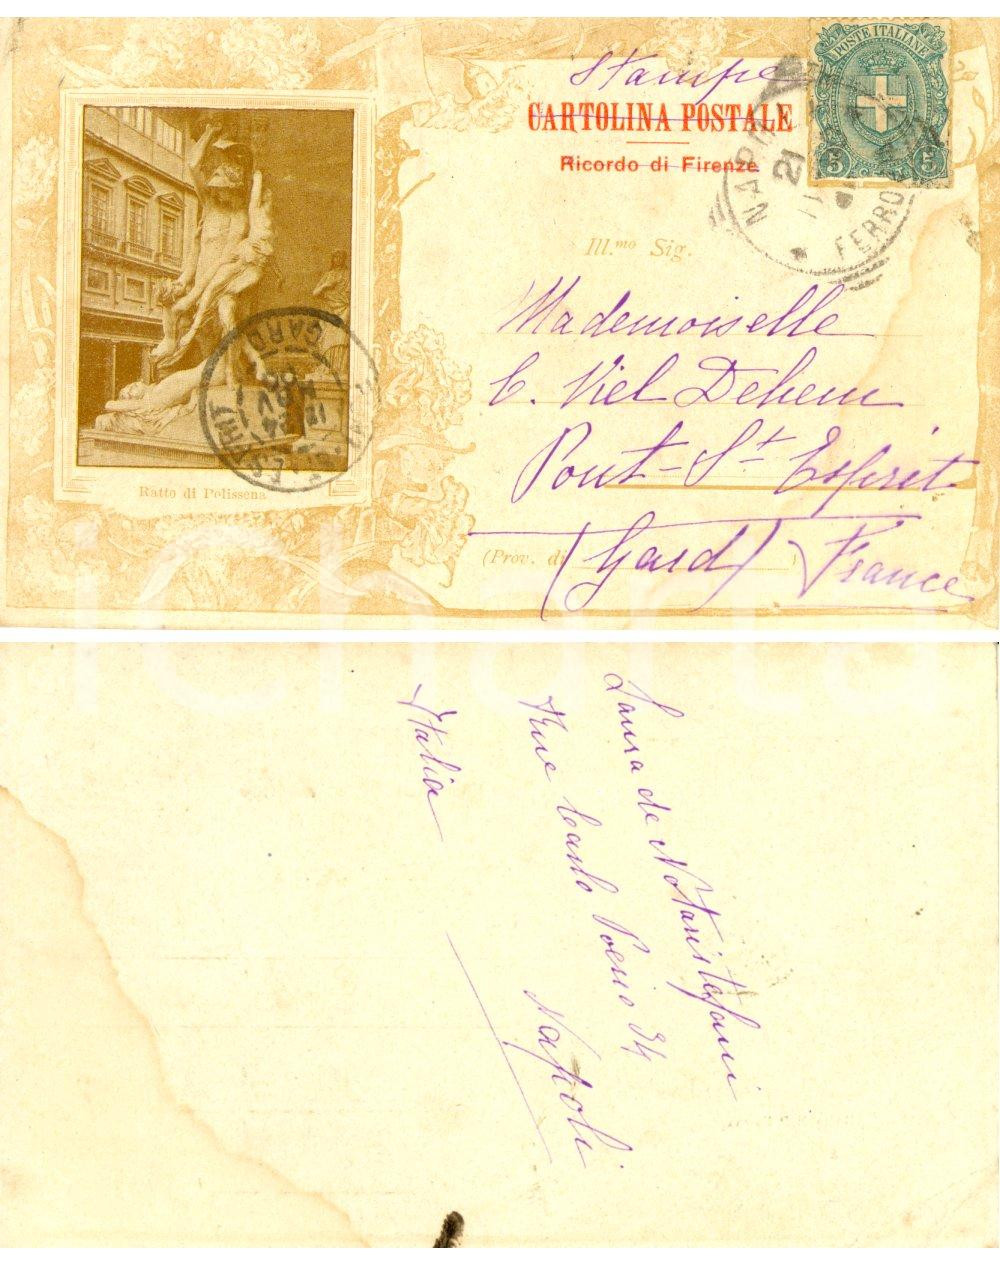 Stampe
CARTOLINA POSTALE
Ricordo di Firenze
POSTE ITALIANE
5 5
NAPOLI
21
FERROVIA
Ill.mo Sig.
Mademoiselle
C. Viel Dehem
Pont-St Esprit
(Prov. di
(Gard) France
Ratto di Polissena
GARD
ESPRIT
iCharta
Laura de Notaristefani
Rue Carlo Poerio 34
Napoli
Italia